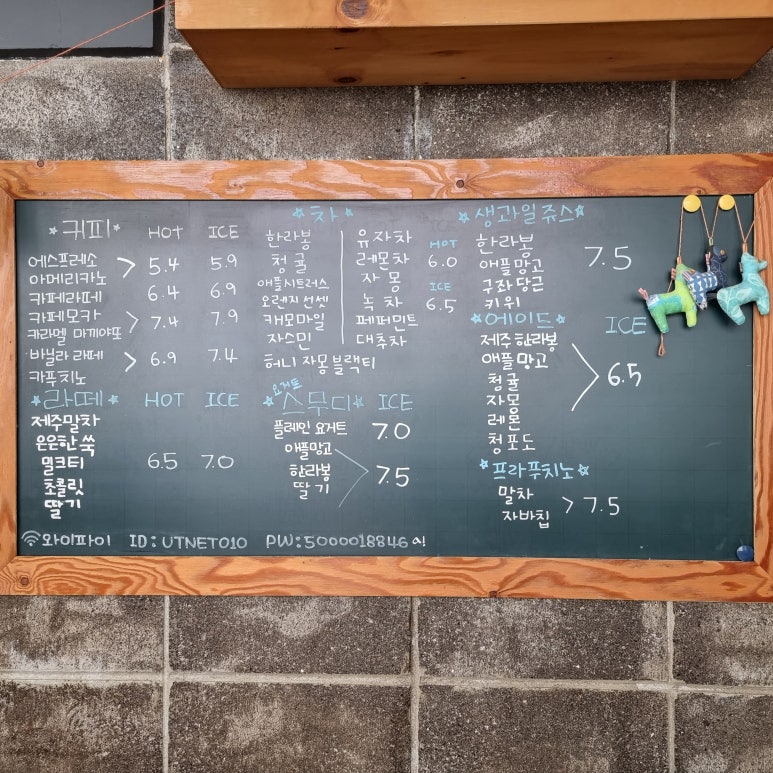 커피 HOT ICE
에스프레소
아메리카노 > 5.4 5.9
카페라떼 6.4 6.9
카페모카
카라멜 마끼야또 > 7.4 7.9
바닐라 라떼
카푸치노 > 6.9 7.4
라떼 HOT ICE
제주말차
은은한 쑥
밀크티 6.5 7.0
초콜릿
딸기
차
한라봉
청귤
애플시트러스
오렌지 선셋
캐모마일
자스민
허니 자몽 블랙티
유자차
레몬차
자몽
녹차
페퍼민트
대추차
HOT
6.0
ICE
6.5
요거트
스무디 ICE
플레인 요거트 7.0
애플망고
한라봉 7.5
딸기
생과일쥬스
한라봉
애플망고 7.5
구좌당근
키위
에이드 ICE
제주 한라봉
애플망고
청귤 6.5
자몽
레몬
청포도
프라푸치노
말차
자바칩 > 7.5
와이파이 ID: UTNET010 PW: 5000018846a!